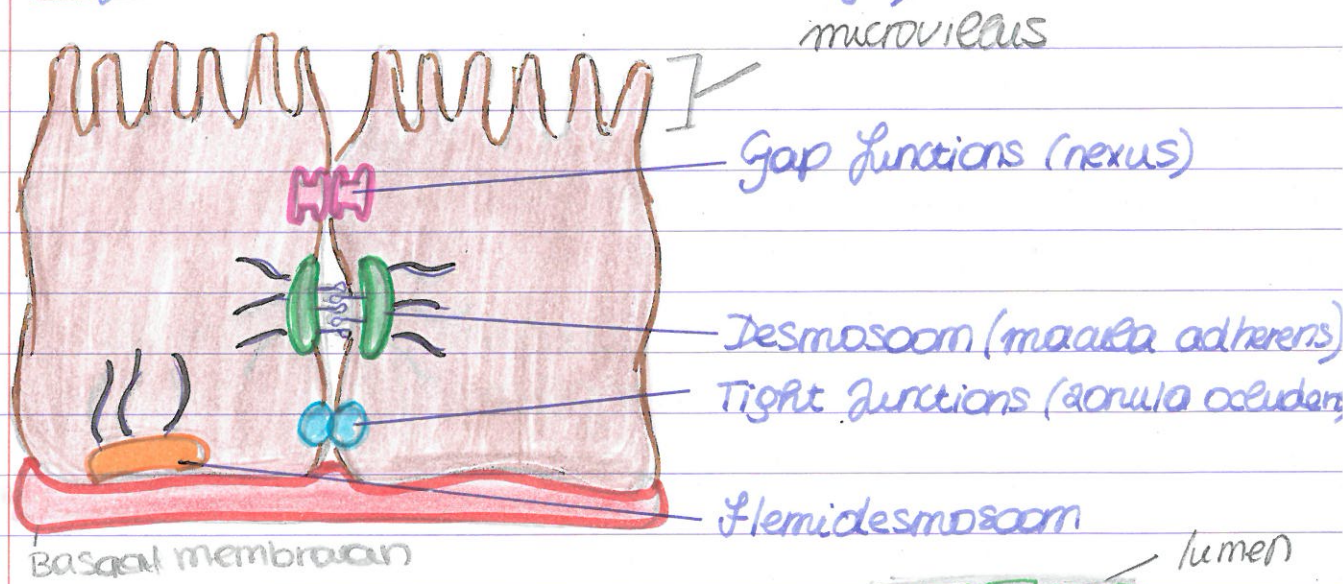 microvillus
Gap Junctions (nexus)
Desmosoom (macula adherens)
Tight Junctions (zonula occluden
Hemidesmosoom
Basaal membraan
lumen